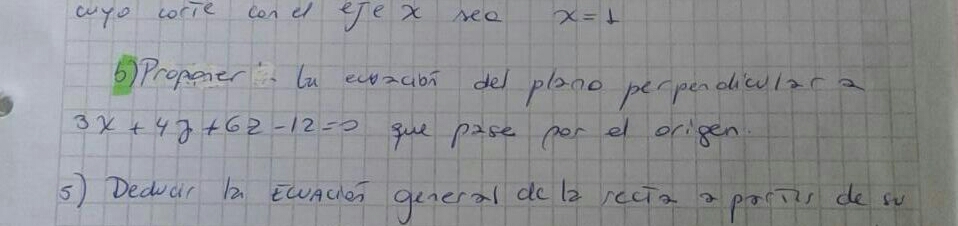 cuyo corte con el eje x sea x=1
b) Proponer la ecuación del plano perpendicular a
3x+4y+6z-12=0 que pase por el origen.
5) Deducir la ECUACIÓN general de la recta a partir de su